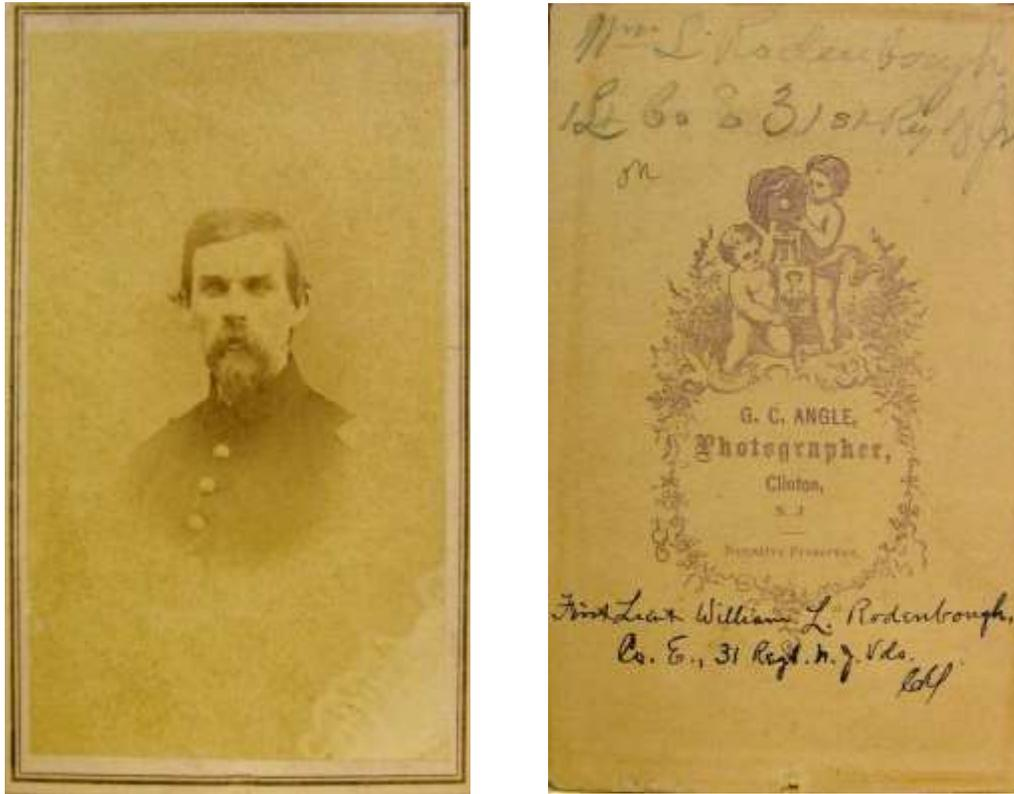 Wm L. Rodenbough
1 Lt Co E 31st Reg N J
G. C. ANGLE,
Photographer,
Clinton,
N. J.
Negative Preserved.
First Lieut William L. Rodenbough,
Co. E., 31 Regt. N. J. Vols.